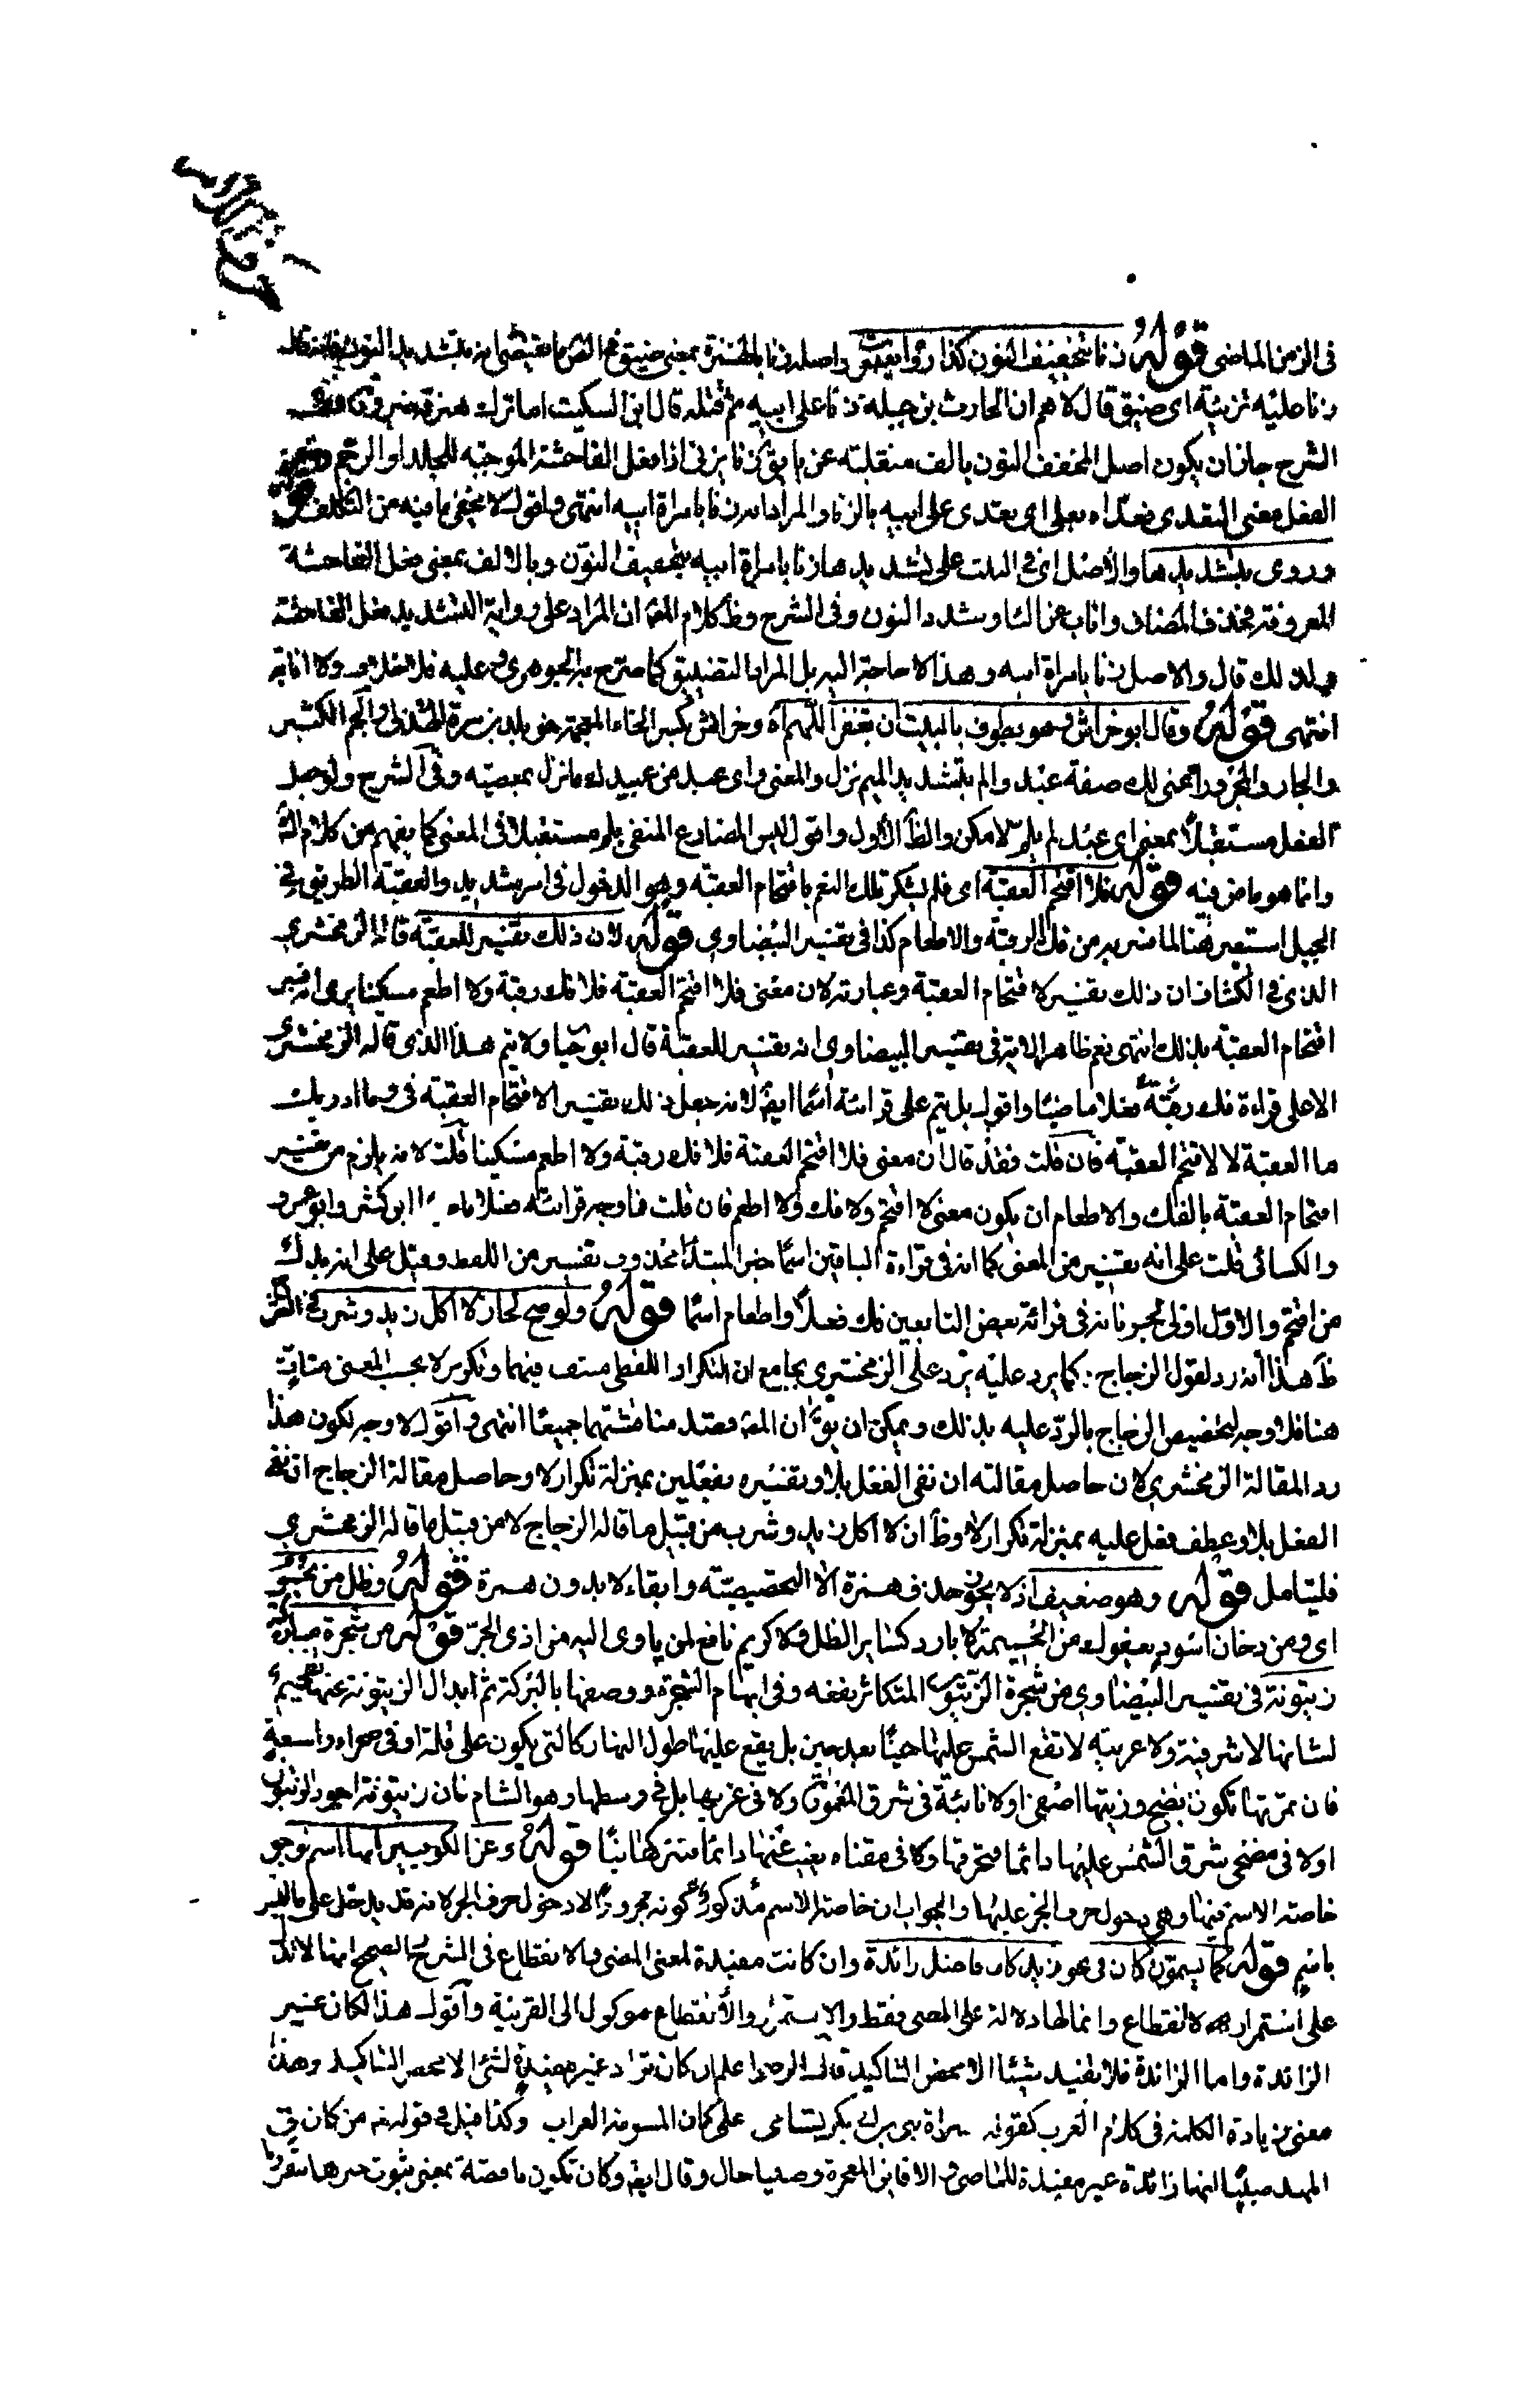 في الزمن الماضي قوله زنا بتخفيف النون كذا رواه يعقوب واصله زنا بالهمزة بمعنى ضيق
زنا عليه تزنئة اى ضيق قال لاهم ان الحارث بن جبله زنا على ابيه ثم قتله قال ابن السكيت انما ترك همزته ضرورة
الشرح جاز ان يكون اصل المخفف النون بالف منقلبة عن يا يق زنا يزني اذا فعل الفاحشة الموجبة للجلد او الرجم
الفعل معنى التعدى فعداه بعلى اى تعدى على ابيه بالزنا والمراد انه زنا بامراة ابيه انتهى واقول لا يخفى ما فيه من التكلف
وروى بتشديدها والاصل اى في البيت على تشديدها زنا بامراة ابيه بتخفيف النون وبالالف بمعنى فعل الفاحشة
المعروفة فحذف المضاف واناب عن الثا وشدد النون وفي الشرح وظ كلام المص ان المراد على رواية التشديد فعل الفاحشة
ولذلك قال والاصل زنا بامراة ابيه وهذا لا حاجة اليه بل المراد التضييق كما صرح به الجوهري وعليه فلا حذف ولا انابة
انتهى قوله وقال ابو خراش وهو يطوف بالبيت ان تغفر اللهم آه وخراش بكسر الخاء المعجمة هو خويلد بن مرة الهذلي والجم الكثير
والجار والمجرور اعنى لك صفة عبد والم بتشديد الميم نزل والمعنى واى عبد من عبيد لك ما نزل بمعصية وفي الشرح ولو جعل
الفعل مستقبلا بمعنى اى عبد لم يلم لا مكن والظ الاول واقول ليس المضارع المنفى بلم مستقبلا في المعنى كما يفهم من كلام الش
وانما هو ماض فيه قوله فلا اقتحم العقبة اى فلم يشكر تلك النعم باقتحام العقبة وهو الدخول في امر شديد والعقبة الطريق في
الجبل استعير هنا لما فسر به من فك الرقبة والاطعام كذا في تفسير البيضاوي قوله لان ذلك تفسير للعقبة قاله الزمخشري
الذي في الكشاف ان ذلك تفسير لاقتحام العقبة وعبارته لان معنى فلا اقتحم العقبة فلا فك رقبة ولا اطعم مسكينا يرى انه فسر
اقتحام العقبة بذلك انتهى نعم ظاهر الاية في تفسير البيضاوي انه تفسير للعقبة قال ابو حيان ولا يتم هذا الذي قاله الزمخشري
الا على قراءة فك رقبة فعلا ماضيا واقول بل يتم على قرائة اسما ايضا لانه جعل ذلك تفسير الاقتحام العقبة في وما ادريك
ما العقبة لا لاقتحم العقبة فان قلت فقد قال ان معنى فلا اقتحم العقبة فلا فك رقبة ولا اطعم مسكينا قلت لانه يلزم من تفسير
اقتحام العقبة بالفك والاطعام ان يكون معنى لا اقتحم ولا فك ولا اطعم فان قلت فما وجه قرائته فعلا ابن كثير وابو عمرو
والكسائي قلت على انه تفسير من المعنى كما انه في قراءة الباقين اسما خبر المبتدأ محذوف تفسير من اللفظ وقيل على انه بدل
من اقتحم والاول اولى لجريانه في قرائة بعض التابعين فك فعلا واطعام اسما قوله ولو صح لجاز لا اكل زيد وشرب في الشرح
ظ هذا انه رد لقول الزجاج كما يرد عليه يرد على الزمخشري بجامع ان التكرار اللفظي منتف فيهما وتكرير لا بحسب المعنى متات
هنا فلا وجه لتخصيص الزجاج بالرد عليه بذلك ويمكن ان يق ان المص قصد مناقشتهما جميعا انتهى واقول لا وجه لكون هذا
رد المقالة الزمخشري لان حاصل مقالته ان نفى الفعل بلا وتفسيره بفعلين بمنزلة تكرار لا وحاصل مقالة الزجاج ان نفى
الفعل بلا وعطف فعل عليه بمنزلة تكرار لا وظ ان لا اكل زيد وشرب من قبيل ما قاله الزجاج لا من قبيل ما قاله الزمخشري
فليتامل قوله وهو ضعيف اذ لا يجوز حذف همزة الا التحضيضية وابقاء لا بدون همزة قوله وظل من يحموم
اى ومن دخان اسود يفعول من الحميمة لا بارد كساير الظل ولا كريم نافع لمن ياوى اليه من اذى الحر قوله من شجرة مباركة
زيتونة في تفسير البيضاوي من شجرة الزيتون المتكاثر نفعه وفي ابهام الشجرة ووصفها بالبركة ثم ابدال الزيتونة عنها تفخيم
لشانها لا شرقية ولا غربية لا تقع الشمس عليها حينا بعد حين بل يقع عليها طول النهار كالتى يكون على قلة او في صحراء واسعة
فان ثمرتها تكون نضيج وزيتها اصفى او لا نابتة في شرق المعمورة ولا في غربها بل في وسطها وهو الشام فان زيتونه اجود الزيتون
او لا في مضحى تشرق الشمس عليها دائما فتحرقها ولا في مقناة يغيب عنها دائما فتتركها نيا قوله وعن الكوفيين انها اسم لوجود
خاصة الاسم فيها وهى دخول حرف الجر عليها والجواب ان خاصة الاسم مذكور كونه مجرورا لا دخول حرف الجر لانه قد يدخل على ما ليس
باسم قوله كما يسمون كان في نحو زيد كان فاضل زائدة وان كانت مفيدة لمعنى المضى والانقطاع في الشرح الصحيح انها لا تدل
على استمرار ولا انقطاع وانما لها دلالة على المضى فقط والاستمرار والانقطاع موكول الى القرينة واقول هذا لكان غير
الزائدة واما الزائدة فلا تفيد شيئا الا محض التاكيد قال الرضى اعلم ان كان تزاد غير مفيدة لشئ الا محض التاكيد وهذا
معنى زيادة الكلمة في كلام العرب كقوله سراة بنى ابى بكر تسامى على كان المسومة العراب وكذا قيل في قوله تع من كان في
المهد صبيا انها زائدة غير مفيدة للماضي والا فاين المعجزة وصبيا حال وقال ايضا وكان تكون ناقصة بمعنى ثبوت خبرها مقرونا